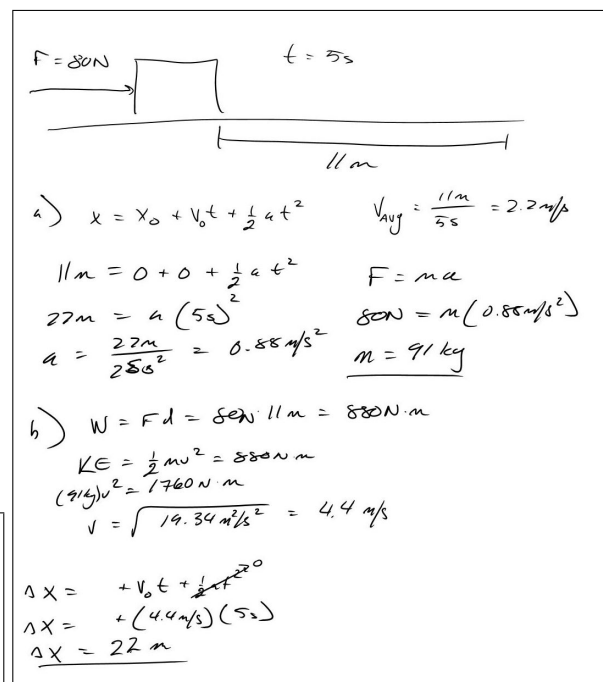 F = 80N
t = 5s
11 m
a) x = x₀ + v₀t + ½ at²
V_Avg = 11m / 5s = 2.2 m/s
11m = 0 + 0 + ½ at²
F = ma
22m = a (5s)²
80N = m(0.88 m/s²)
a = 22m / 25s² = 0.88 m/s²
m = 91 kg
b) W = Fd = 80N · 11m = 880 N·m
KE = ½ mv² = 880 N·m
(91kg)v² = 1760 N·m
v = √19.34 m²/s² = 4.4 m/s
Δx = + v₀t + ½at² → 0
Δx = + (4.4 m/s)(5s)
Δx = 22 m